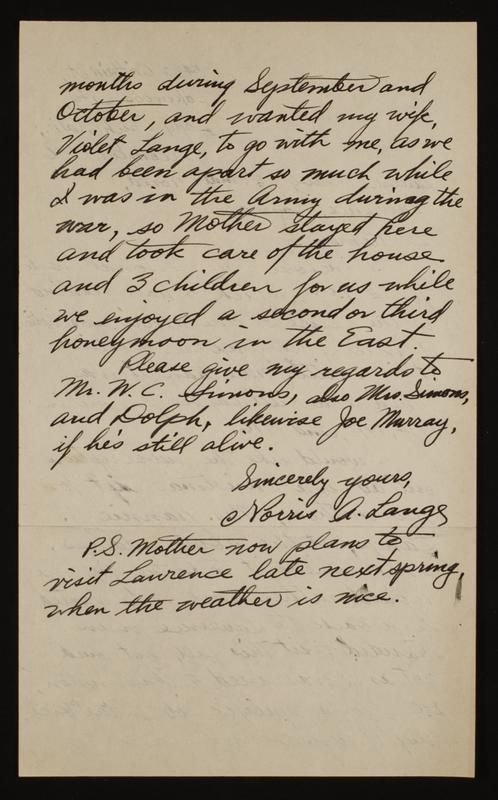 months during September and
October, and wanted my wife,
Violet Lange, to go with me, as we
had been apart so much while
I was in the Army during the
war, so Mother stayed here
and took care of the house
and 3 children for us while
we enjoyed a second or third
honeymoon in the East.
Please give my regards to
Mr. W. C. Simons, also Mrs. Simons,
and Dolph, likewise Joe Murray,
if he's still alive.
Sincerely yours,
Norris A. Lange
P.S. Mother now plans to
visit Lawrence late next spring,
when the weather is nice.